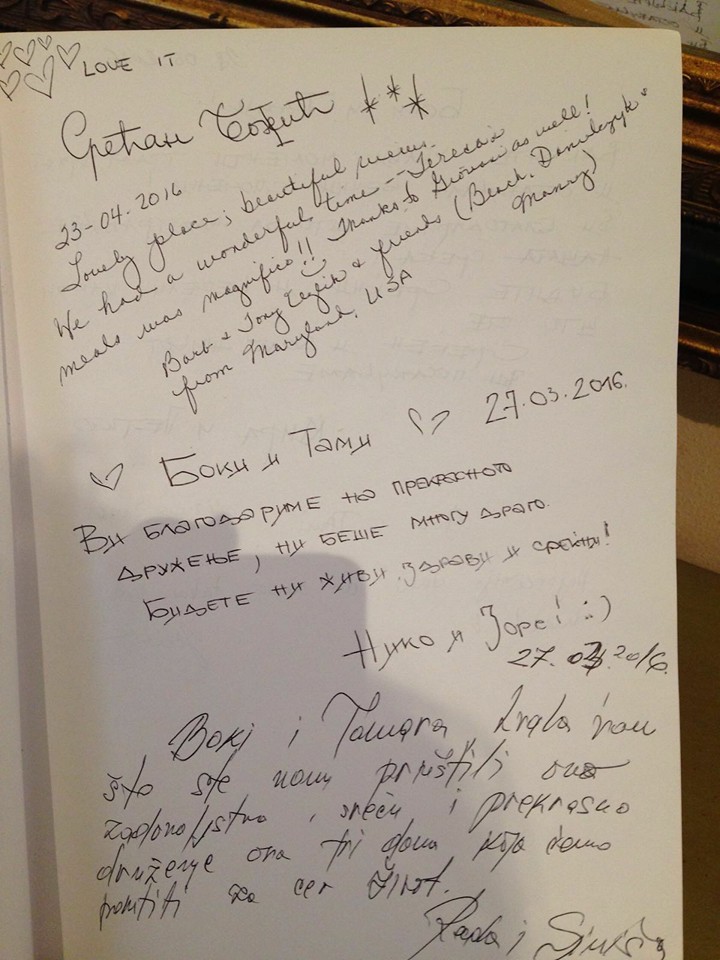 LOVE IT
Срећан Божић ***
23-04.2016
Lovely place; beautiful views.
We had a wonderful time -- Tereca's
meals was magnifico!! Thanks to Giovani as well!
Barb & Tony & friends (Beach, Danielczyk &
from Maryland, USA Manry)
Боки и Тами 27.03.2016.
Ви благодариме на прекрасното
дружење, ни беше многу драго.
Бидете ни живи, здрави и среќни!
Нико и Заре! :)
27.03.2016.
Boki i Tamara, hvala vam
što ste nam priuštili ovo
zadovoljstvo, sreću i prekrasno
druženje ova tri dana koja ćemo
pamtiti za ceo život.
Rada i Siniša